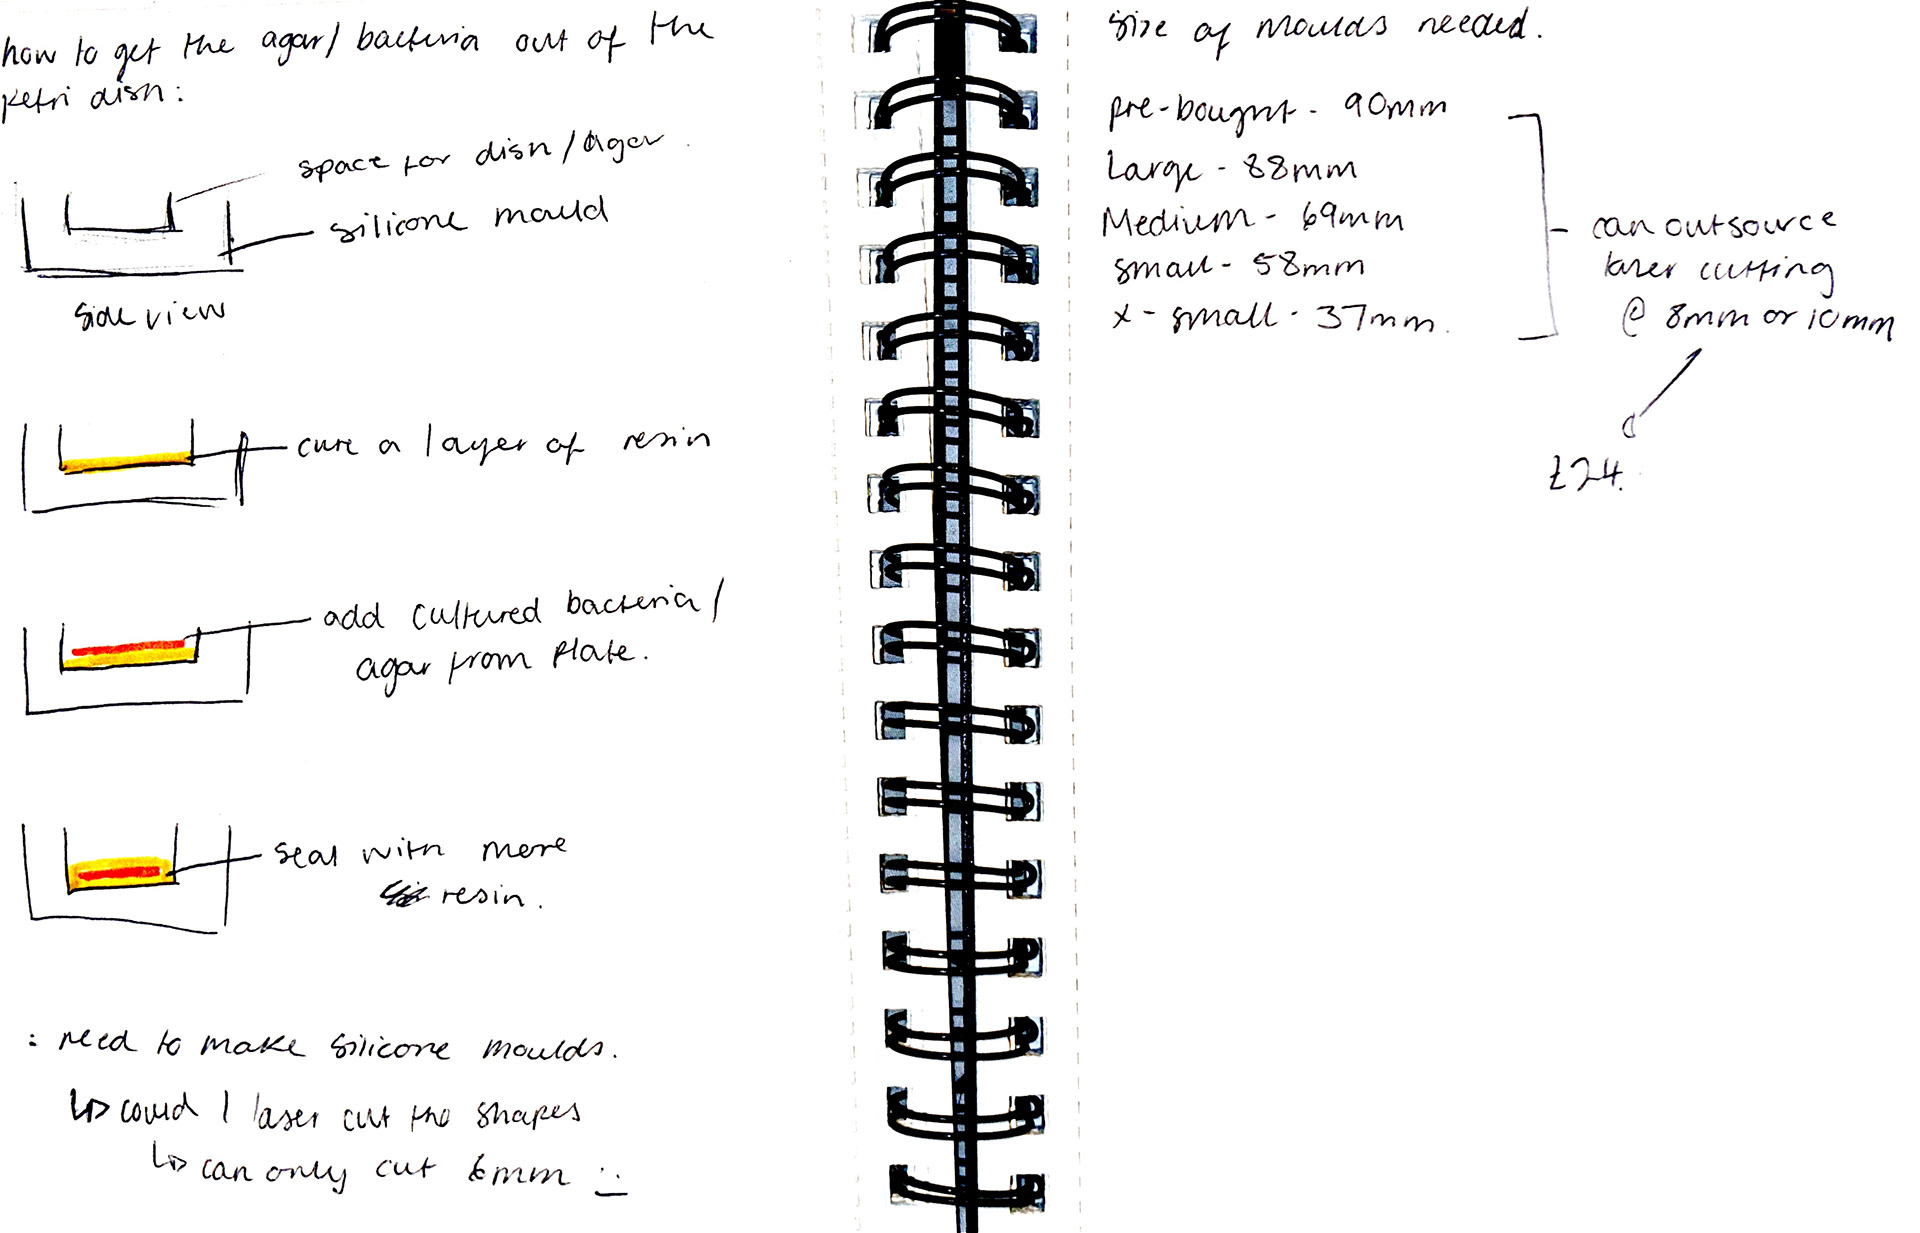 how to get the agar/bacteria out of the
petri dish:
space for dish/agar.
silicone mould
side view
cure a layer of resin
add cultured bacteria/
agar from plate.
seal with more
resin.
: need to make silicone moulds.
↳ could I laser cut the shapes
↳ can only cut 6mm
size of moulds needed.
pre-bought - 90mm
Large - 88mm
Medium - 69mm
small - 58mm
x-small - 37mm.
can outsource
laser cutting
@ 8mm or 10mm
£24.